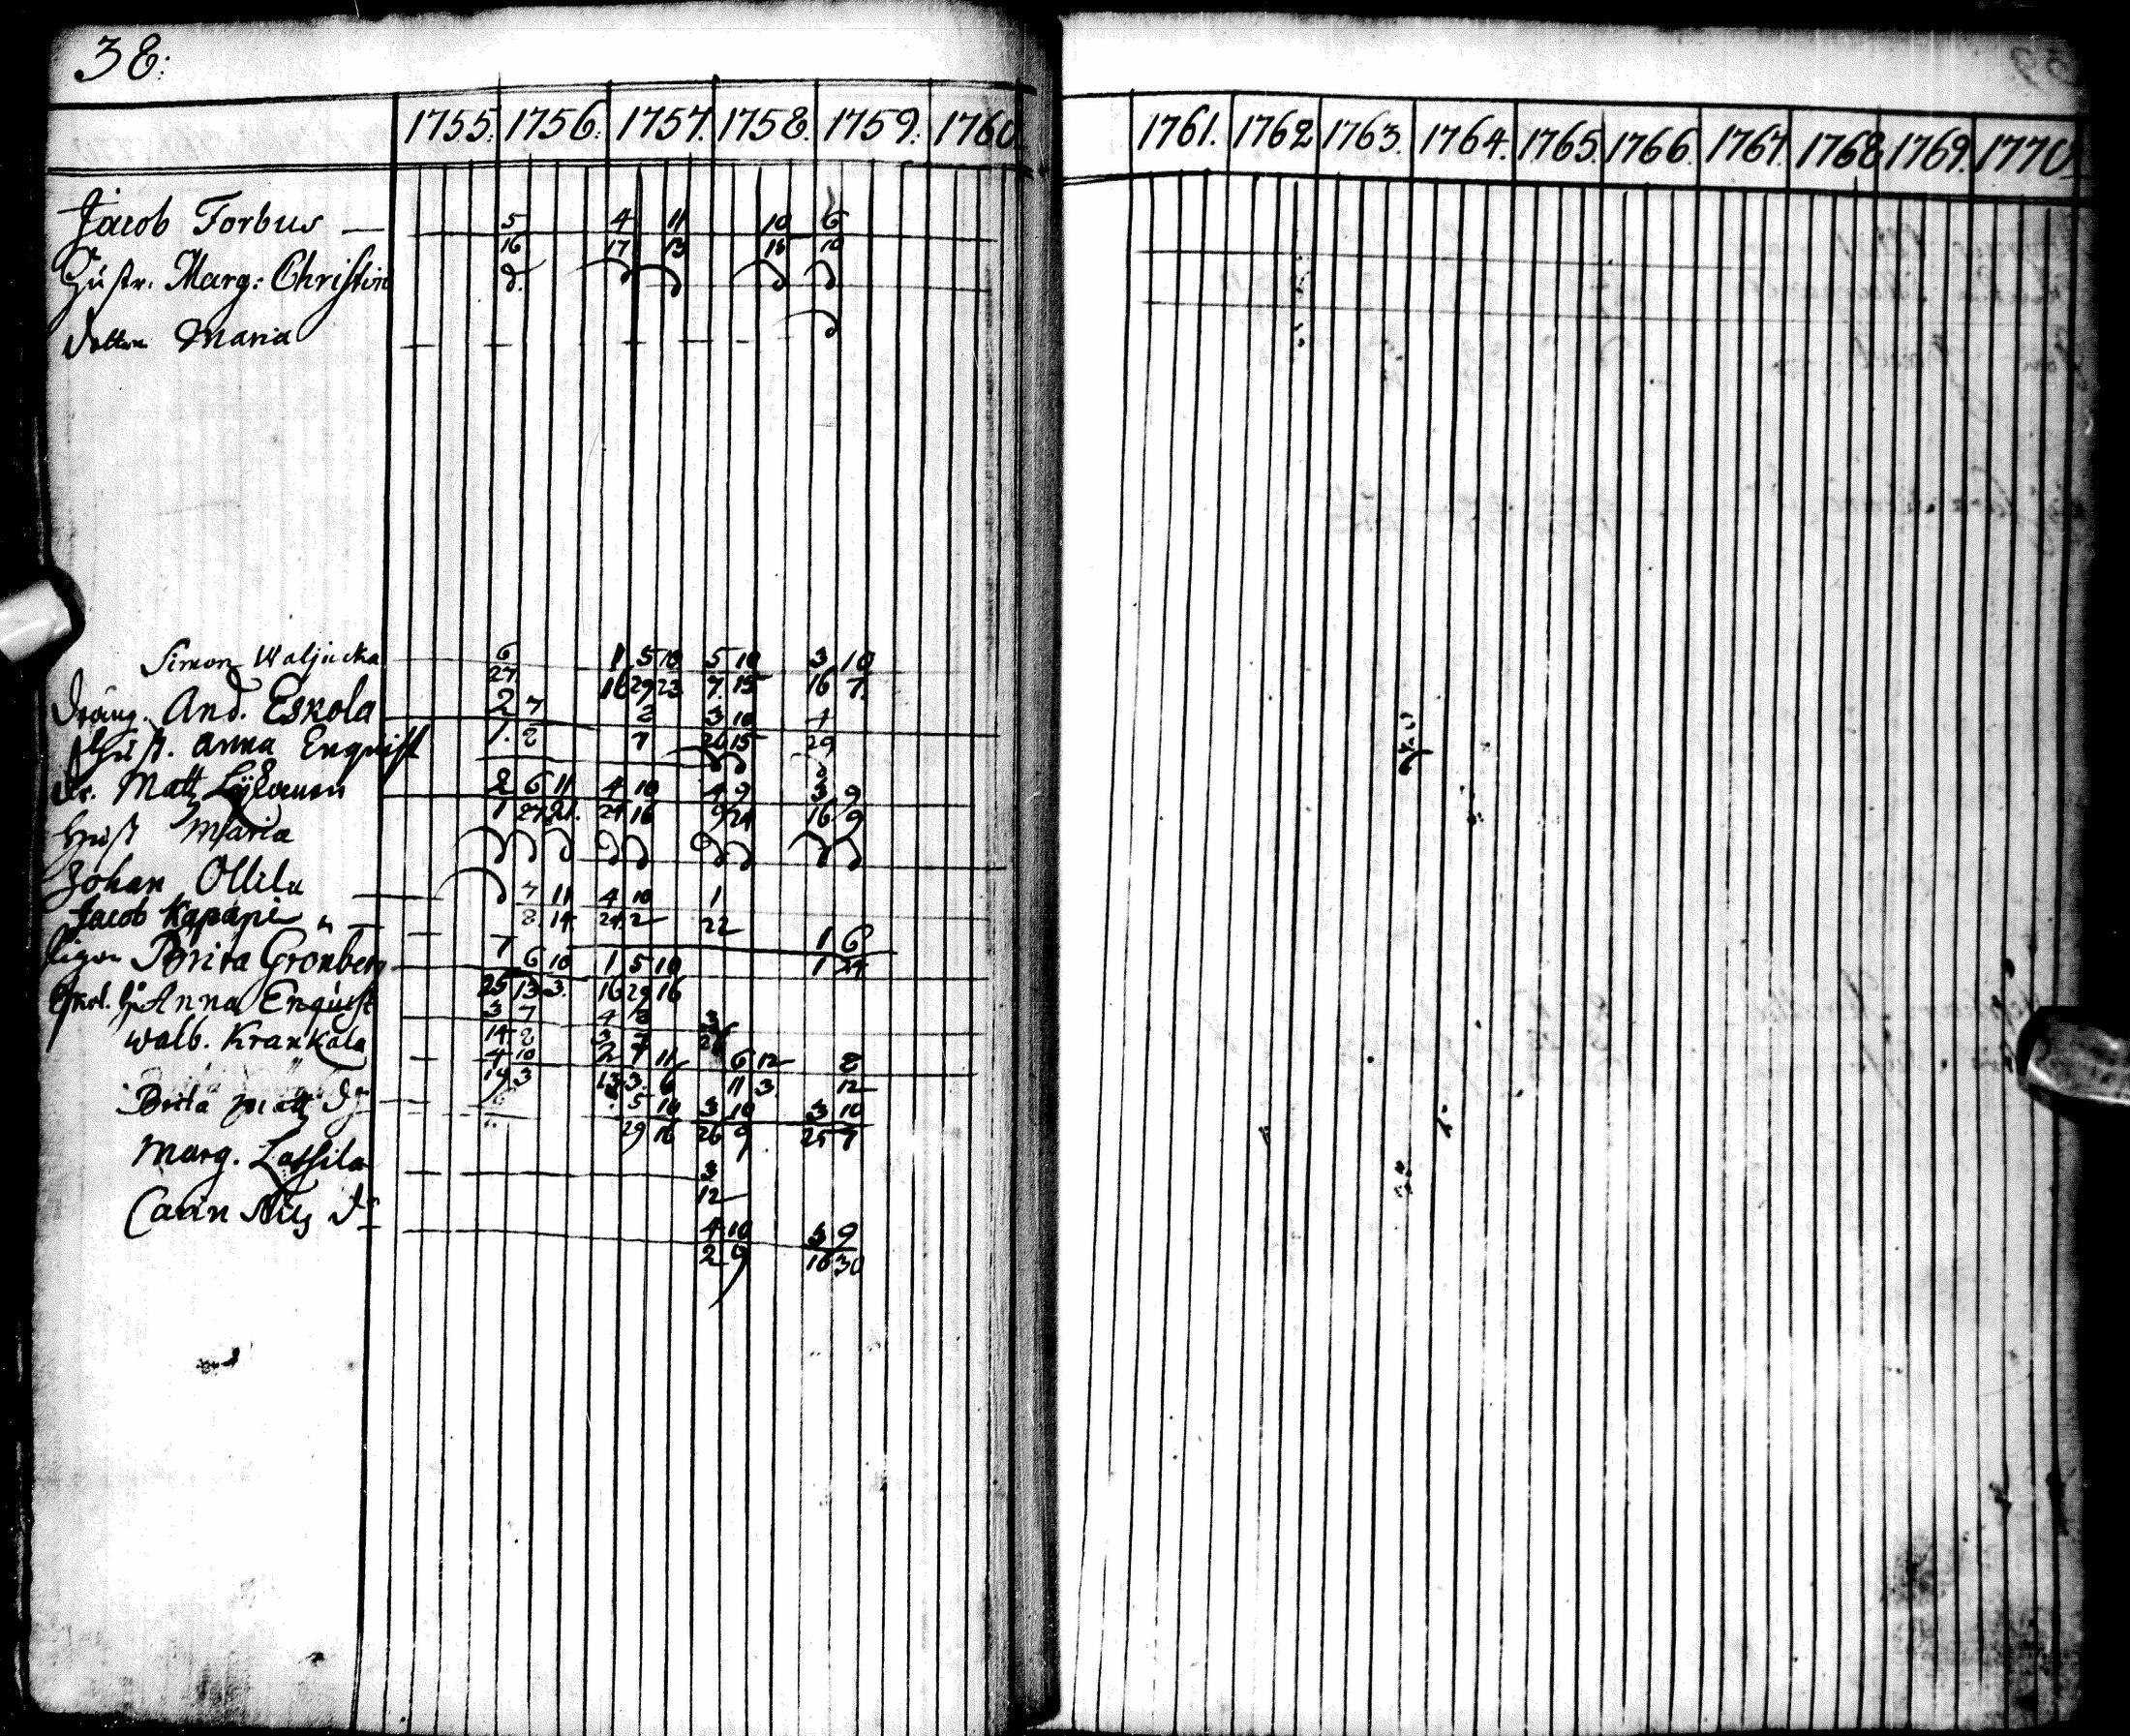 38:
1755. 1756. 1757. 1758. 1759. 1760. 1761. 1762 1763. 1764. 1765. 1766. 1767. 1768 1769. 1770
Jacob Forbus — 5 4 11 10 6
16 17 13 18 10
Hustr. Marg: Christin
dottren Maria
Simon Waljacka 6 1 5 10 5 10 3 10
27 16 29 23 7 15 16 7
dräng. And. Eskola 2 7 2 3 10 4
1. 2 7 26 15 29
Hust. Anna Enqvist
dr. Matt 2 6 11 4 10 4 9 3 9
1 27 21. 24 16 9 24 16 9
Hust Maria
Johan Ollila 7 11 4 10 1
8. 14 24 2 22
Jacob Kapapi 1 6
pigan Brita Gronberg 7 6 10 1 5 10 1 24
25 13 3. 16 29 16
Eskol. H. Anna Enquist 3 7 4 2 3
14 2 3 7 26
walb. Krankala 4 10 2 7 11 6 12 8
19 3 13 3. 6 11 3 12
Brita Matts dr 5 10 3 10 3 10
29 16 26 9 25 7
Marg. Lassila 3
12
Carin Nils dr 4 10 3 9
2 9 16 30